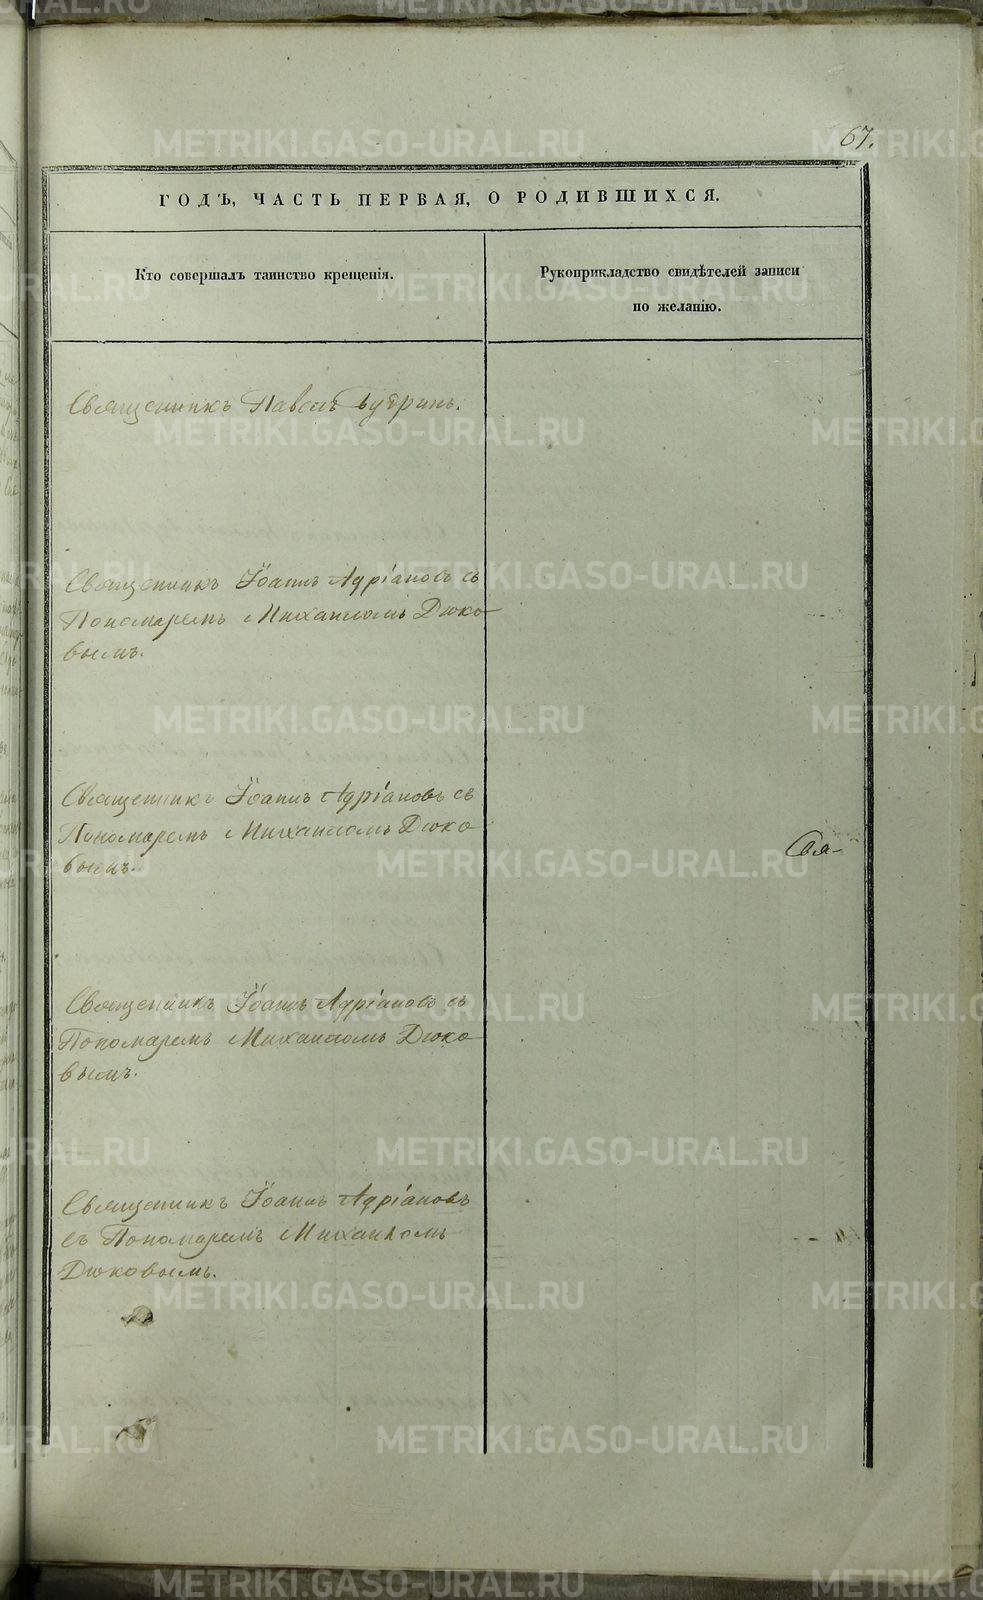 67.
ГОДЪ, ЧАСТЬ ПЕРВАЯ, О РОДИВШИХСЯ.
Кто совершалъ таинство крещенія.
Рукоприкладство свидѣтелей записи
по желанію.
Священникъ Павелъ Бутринъ.
Священникъ Іоаннъ Адріановъ съ
Пономаремъ Михаиломъ Дюко-
вымъ.
Священникъ Іоаннъ Адріановъ съ
Пономаремъ Михаиломъ Дюко-
вымъ.
Свя-
Священникъ Іоаннъ Адріановъ съ
Пономаремъ Михаиломъ Дюко-
вымъ.
Священникъ Іоаннъ Адріановъ
съ Пономаремъ Михаиломъ
Дюковымъ.
METRIKI.GASO-URAL.RU